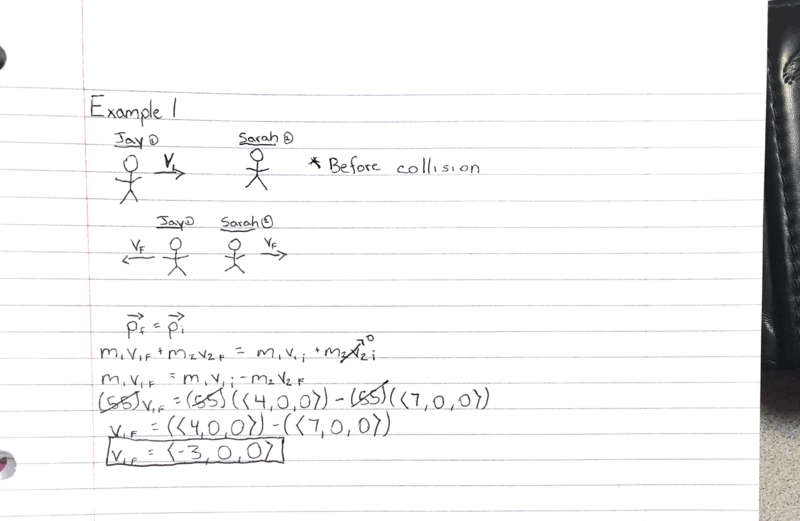 Example 1
Jay ① Sarah ②
V₁ * Before collision
Jay ① Sarah ②
V_F V_F
p⃗_f = p⃗_i
m₁v₁F + m₂v₂F = m₁v₁i + m₂v₂i → 0
m₁v₁F = m₁v₁i - m₂v₂F
(55)v₁F = (55)(⟨4,0,0⟩) - (55)(⟨7,0,0⟩)
v₁F = (⟨4,0,0⟩) - (⟨7,0,0⟩)
v₁F = ⟨-3, 0, 0⟩